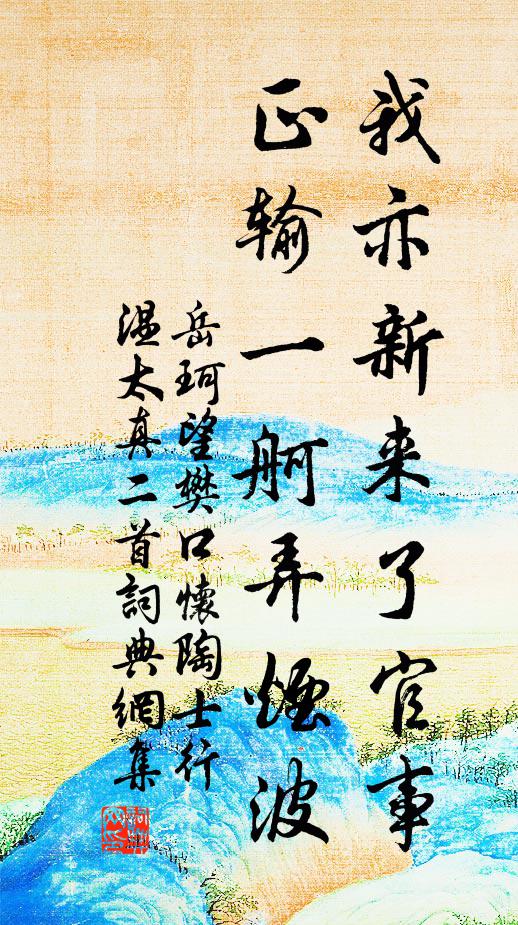 我亦新来了官事
正输一舸弄烟波
岳珂望樊口懷陶士行
温太真二首詞典網集